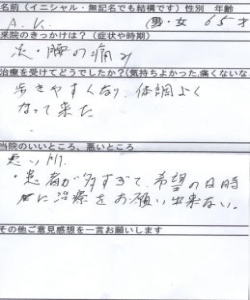 名前（イニシャル・無記名でも結構です）性別　年齢
A.K.　男・女　65才
来院のきっかけは？（症状や時期）
腰の痛み
治療を受けてどうでしたか？(気持ちよかった、痛くないな
歩きやすくなり、体調よく
なって来た
当院のいいところ、悪いところ
悪い所、
・患者が多すぎて、希望の日時
に治療をお願い出来ない。
その他ご意見感想を一言お願いします